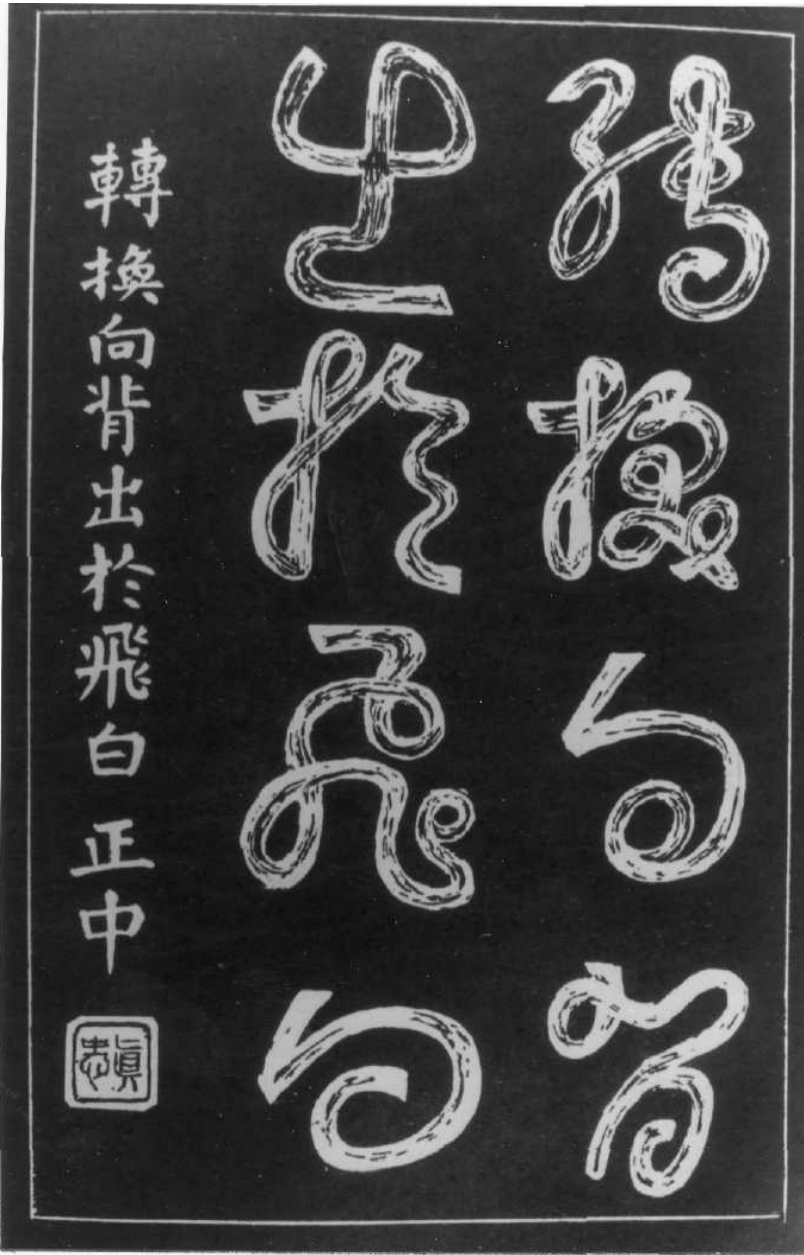 轉換向背
出於飛白
轉換向背出於飛白 正中